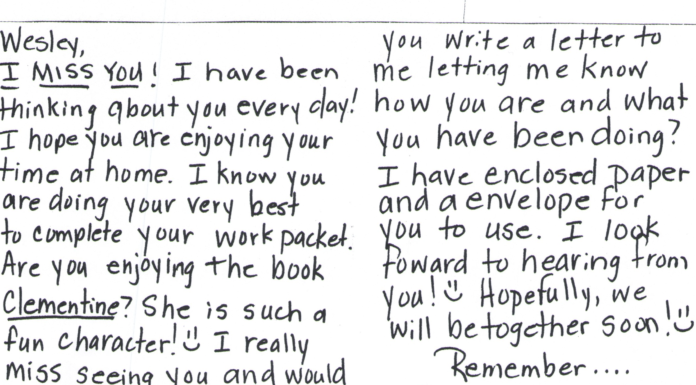 Wesley,
I MISS YOU! I have been
thinking about you every day!
I hope you are enjoying your
time at home. I know you
are doing your very best
to complete your work packet.
Are you enjoying the book
Clementine? She is such a
fun character! I really
miss seeing you and would
you write a letter to
me letting me know
how you are and what
you have been doing?
I have enclosed paper
and a envelope for
you to use. I look
foward to hearing from
you! Hopefully, we
will be together soon!
Remember....